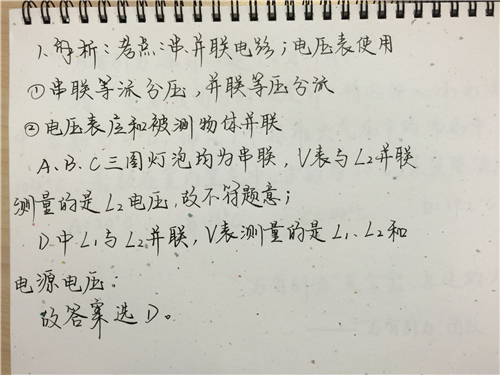 1.解析：考点：串.并联电路；电压表使用
①串联等流分压，并联等压分流
②电压表应和被测物体并联
A、B、C三图灯泡均为串联，V表与L2并联
测量的是L2电压，故不符题意；
D中L1与L2并联，V表测量的是L1、L2和
电源电压。
故答案选D。